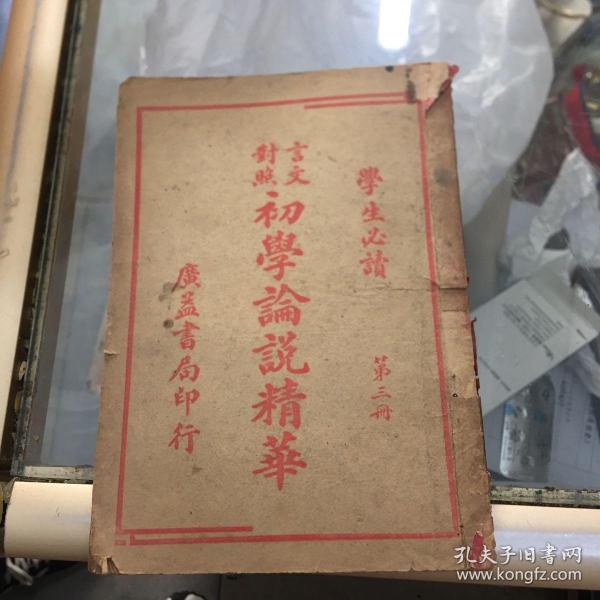 學生必讀
第三冊
言文
對照
初學論説精華
廣益書局印行
孔夫子旧书网
www.kongfz.com